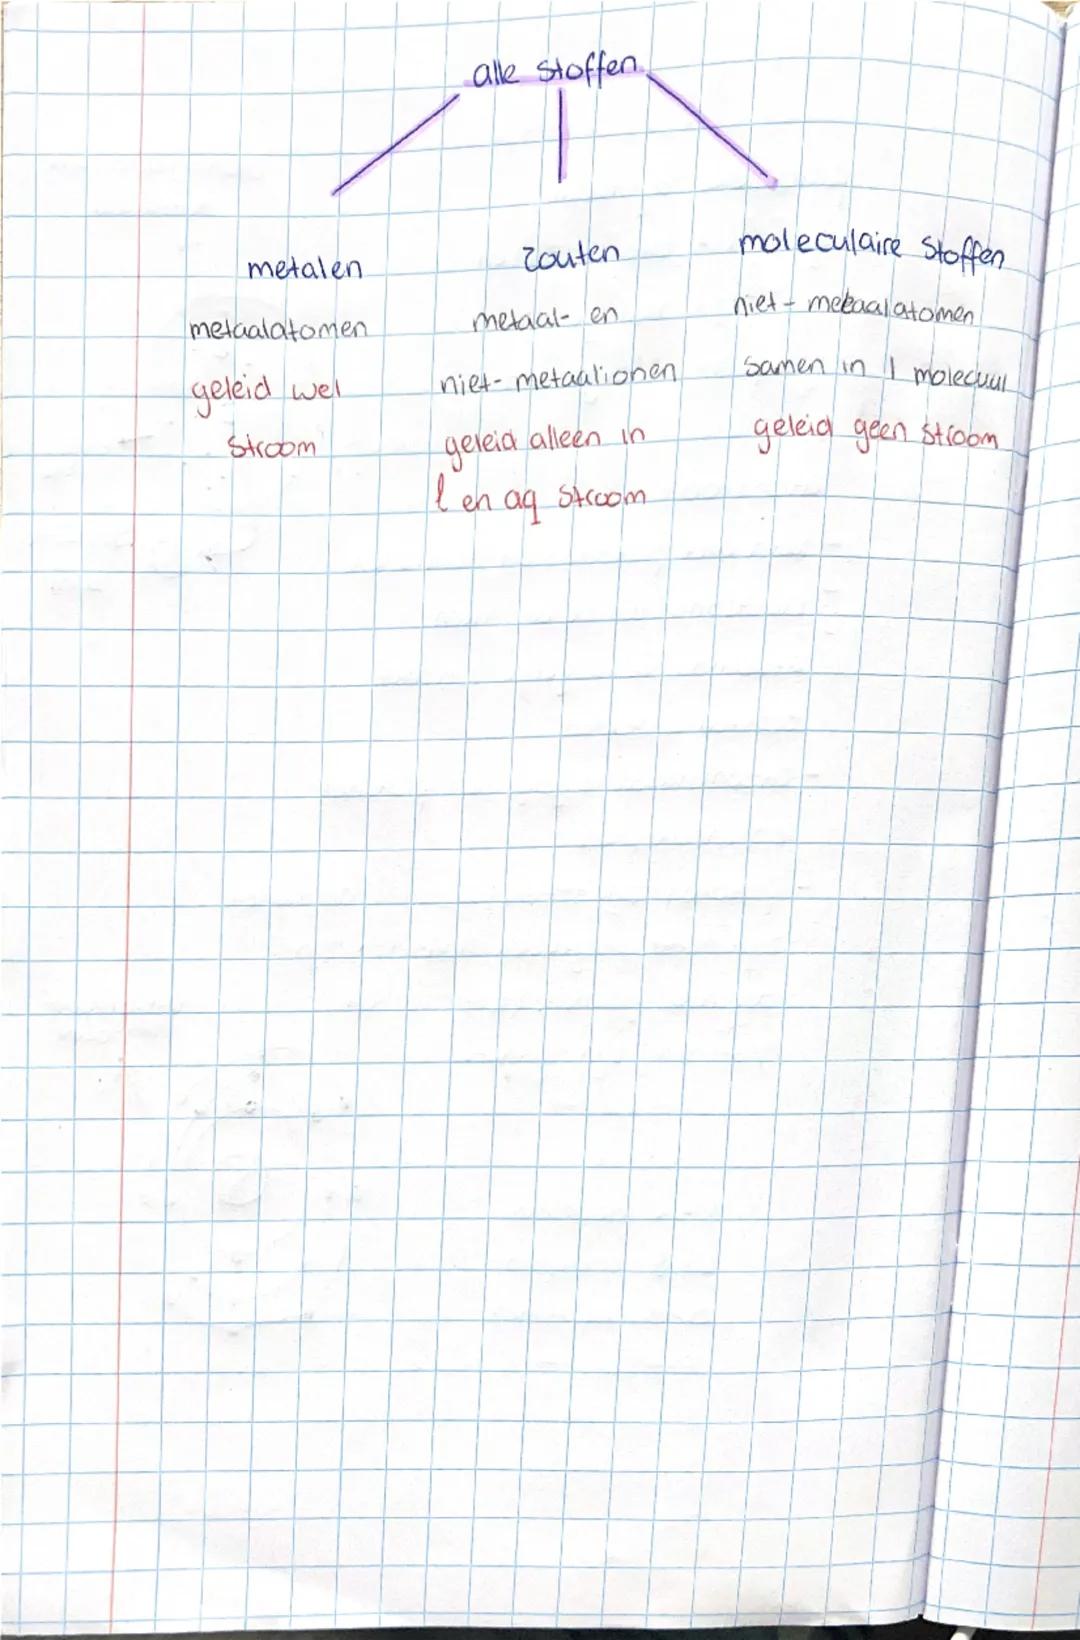 alle stoffen
metalen
metaalatomen
geleid wel
stroom
zouten
metaal- en
niet-metaalionen
geleid alleen in
l en aq stroom
moleculaire stoffen
niet-metaalatomen
samen in 1 molecuul
geleid geen stroom